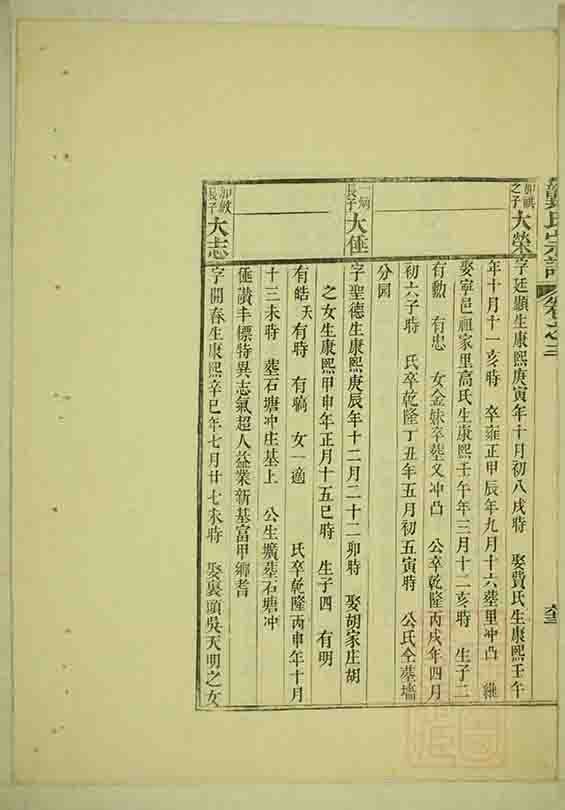 氏宗譜 卷之三
卿祺之子 大榮 字廷顯生康熙庚寅年十月初八戌時 娶費氏生康熙壬午
年十月十一亥時 卒雍正甲辰年九月十六葬里冲凸 繼
娶寧邑祖家里高氏生康熙壬午年三月十二亥時 生子二
有勲 有忠 女金妹卒葬叉冲凸 公卒乾隆丙戌年四月
初六子時 氏卒乾隆丁丑年五月初五寅時 公氏仝墓墻
分圓
一炳長子 大倕 字聖德生康熙庚辰年十二月二十二卯時 娶胡家庄胡
之女生康熙甲申年正月十五巳時 生子四 有明
有皓 天 有時 有暠 女一適 氏卒乾隆丙申年十月
十三未時 葬石塘冲庄基上 公生壙葬石塘冲
倕讚丰標特異志氣超人益業新基富甲鄉耆
卿敏長子 大志 字開春生康熙辛巳年七月廿七未時 娶裏頭吳天明之女